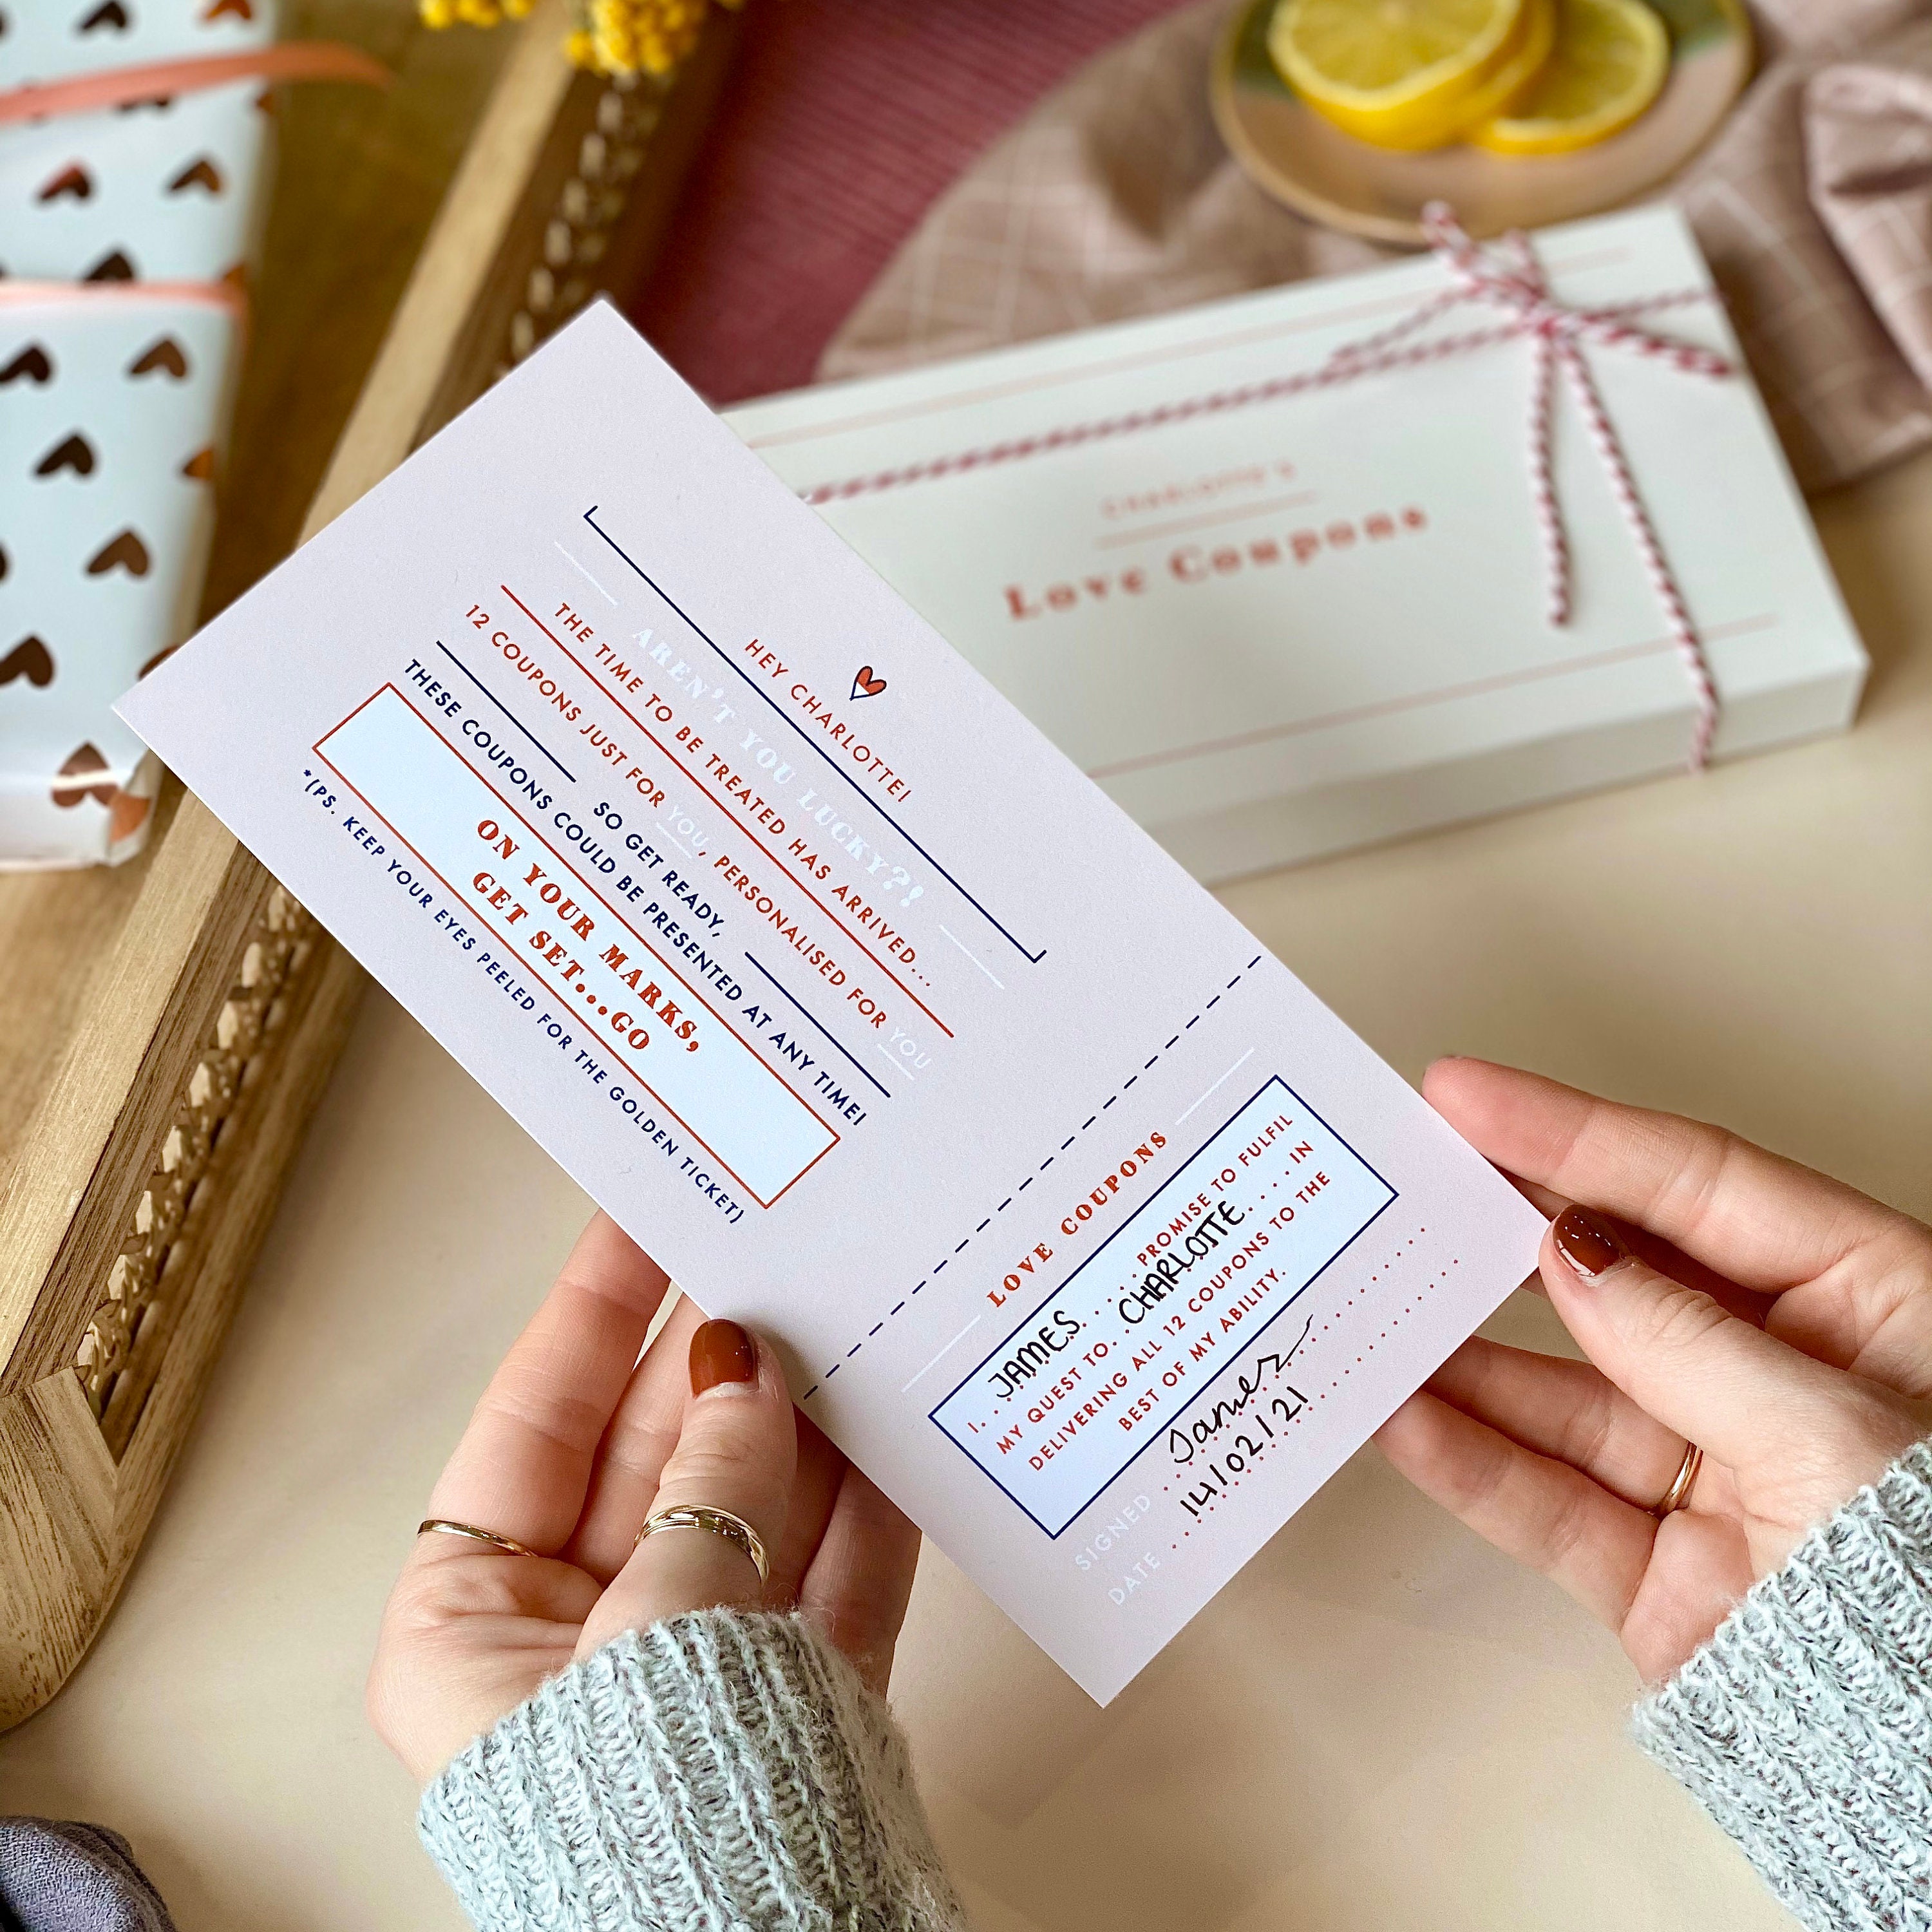 HEY CHARLOTTE!
AREN'T YOU LUCKY?!
THE TIME TO BE TREATED HAS ARRIVED...
12 COUPONS JUST FOR YOU, PERSONALISED FOR YOU
SO GET READY,
THESE COUPONS COULD BE PRESENTED AT ANY TIME!
ON YOUR MARKS,
GET SET...GO
*(PS. KEEP YOUR EYES PEELED FOR THE GOLDEN TICKET)
LOVE COUPONS
I. JAMES PROMISE TO FULFIL
MY QUEST TO. CHARLOTTE IN
DELIVERING ALL 12 COUPONS TO THE
BEST OF MY ABILITY.
SIGNED James
DATE 14/02/21
CHARLOTTE'S
Love Coupons